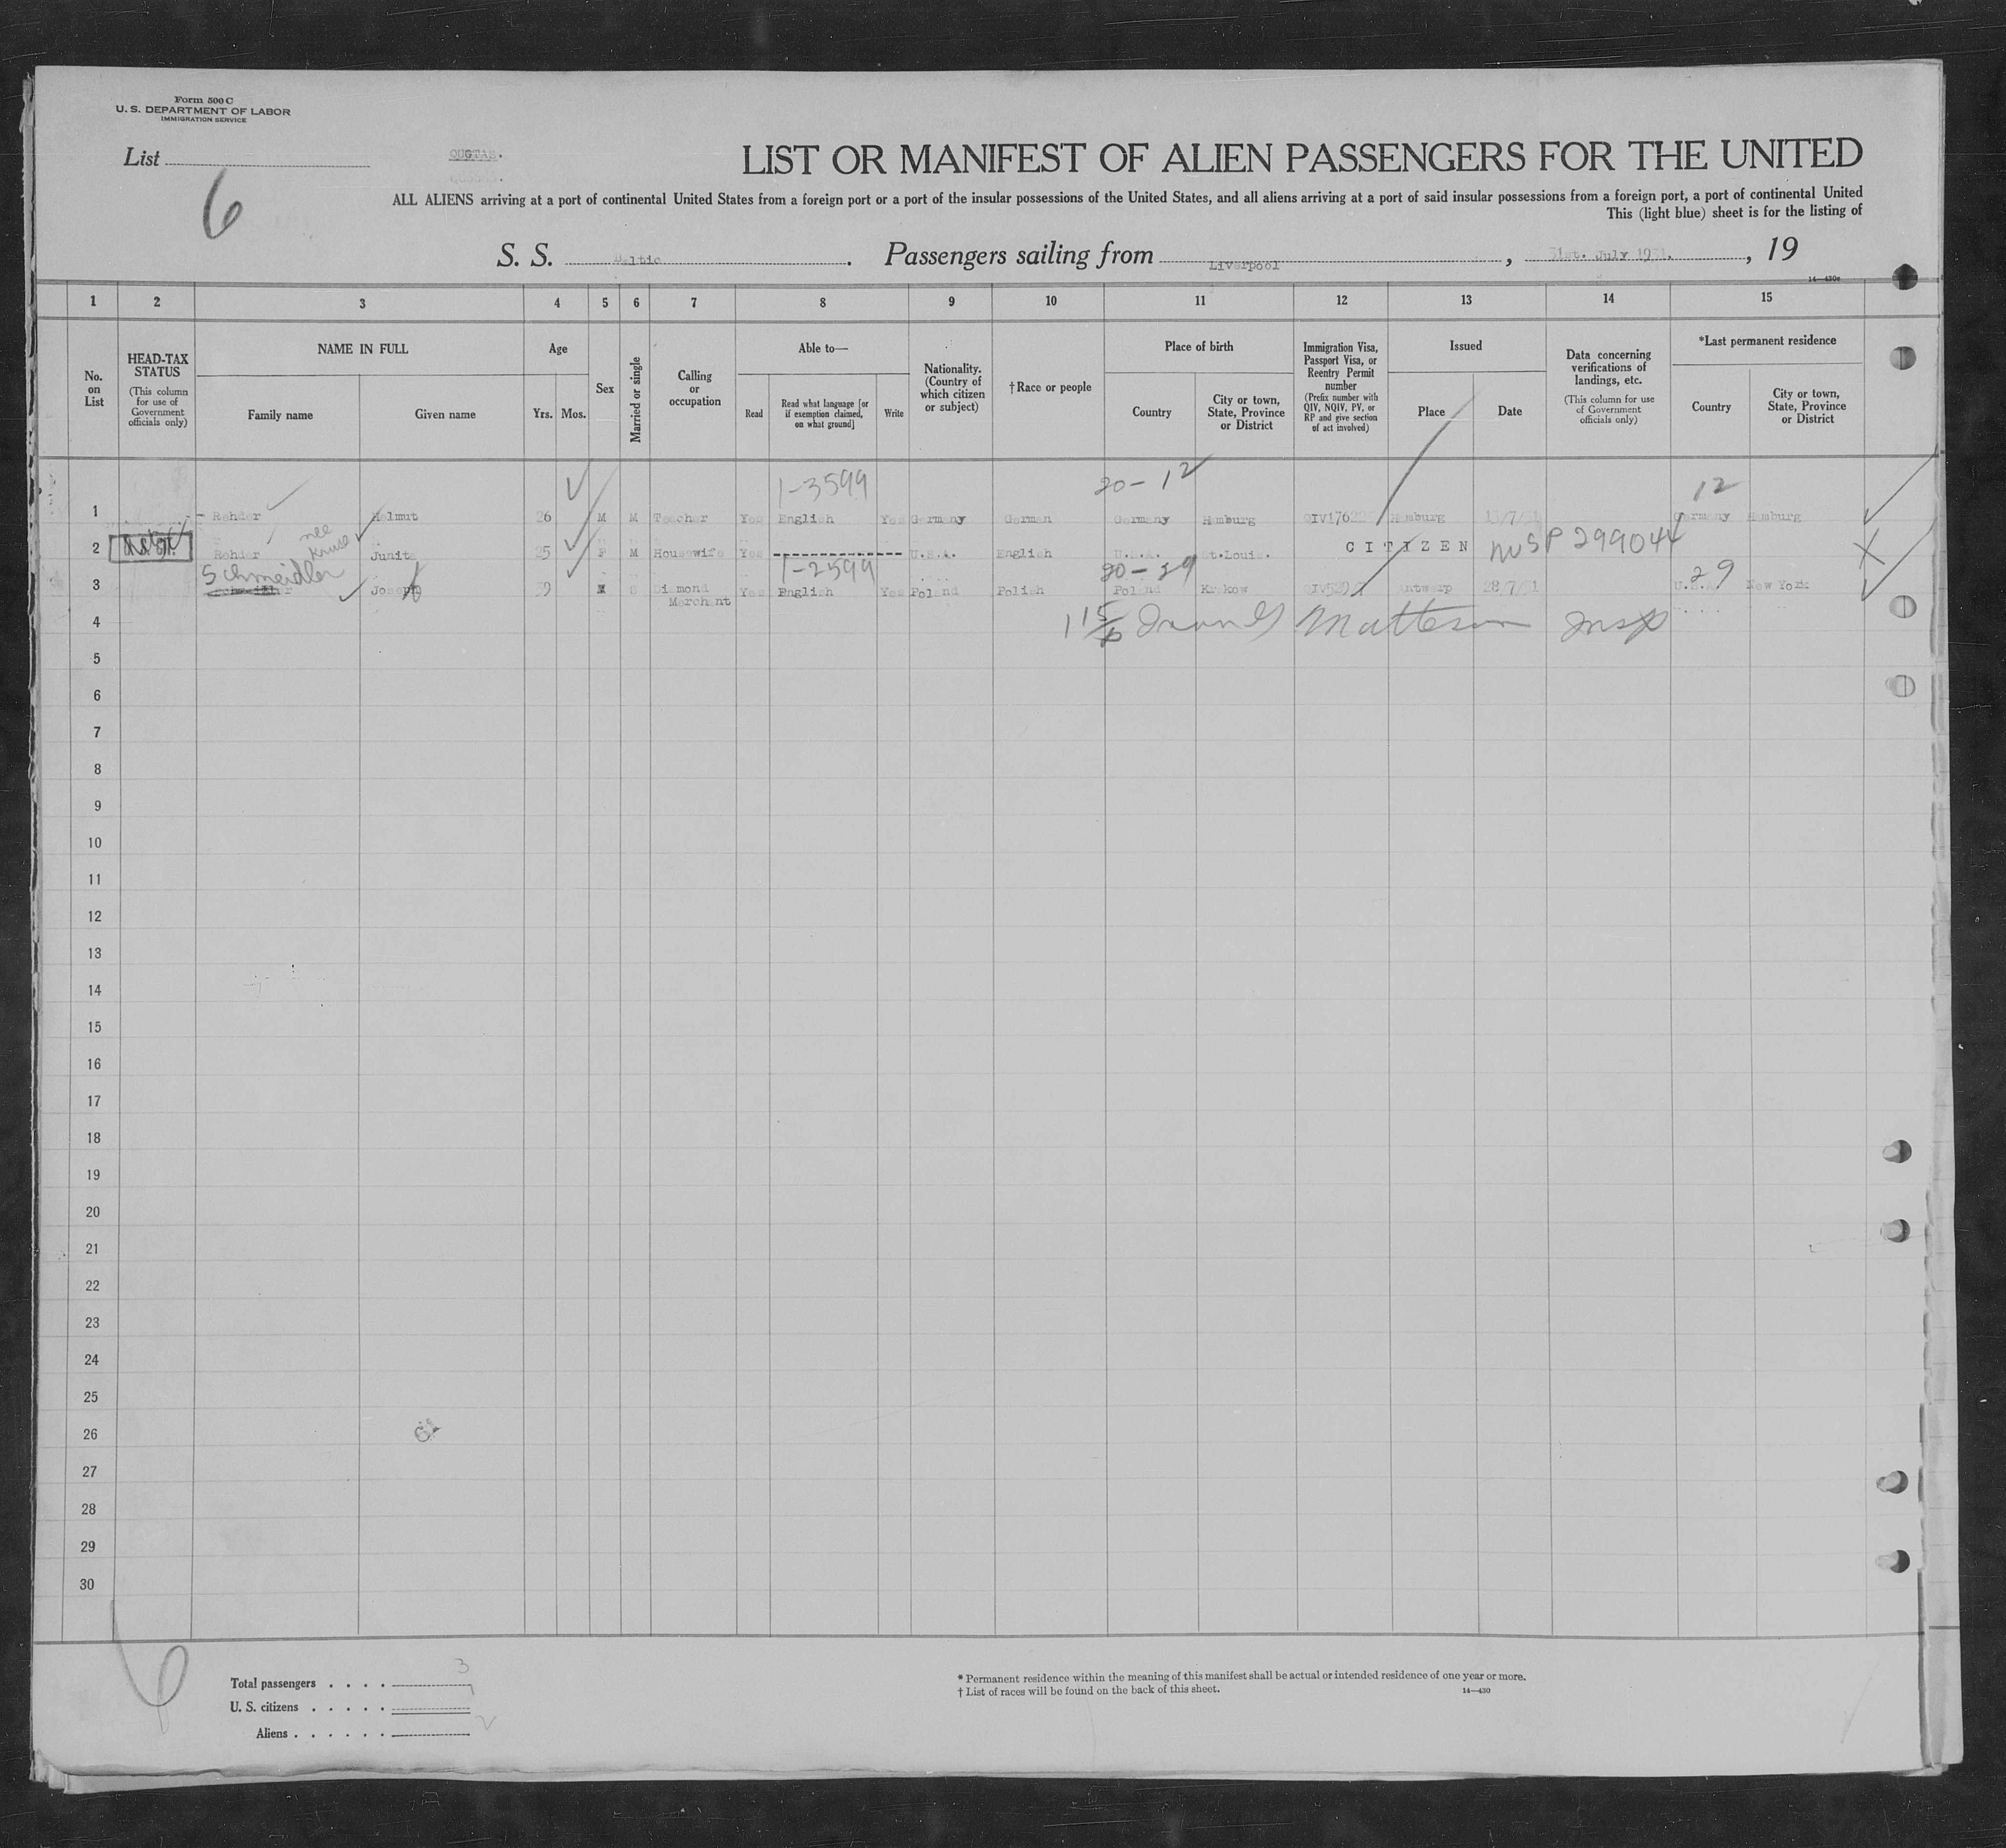 Form 500 C
U. S. DEPARTMENT OF LABOR
IMMIGRATION SERVICE
List
QUOTAS.
6
LIST OR MANIFEST OF ALIEN PASSENGERS FOR THE UNITED
ALL ALIENS arriving at a port of continental United States from a foreign port or a port of the insular possessions of the United States, and all aliens arriving at a port of said insular possessions from a foreign port, a port of continental United
This (light blue) sheet is for the listing of
S. S. Baltic. Passengers sailing from Liverpool, 31st. July 1931., 19
14—430c
1 2 3 4 5 6 7 8 9 10 11 12 13 14 15
No. on List
HEAD-TAX STATUS
(This column for use of Government officials only)
NAME IN FULL
Family name
Given name
Age
Yrs. Mos.
Sex
Married or single
Calling or occupation
Able to—
Read
Read what language [or if exemption claimed, on what ground]
Write
Nationality. (Country of which citizen or subject)
†Race or people
Place of birth
Country
City or town, State, Province or District
Immigration Visa, Passport Visa, or Reentry Permit number
(Prefix number with QIV, NQIV, PV, or RP and give section of act involved)
Issued
Place
Date
Data concerning verifications of landings, etc.
(This column for use of Government officials only)
*Last permanent residence
Country
City or town, State, Province or District
1-3599 20-12 12
1 Rehder Helmut 26 M M Teacher Yes English Yes Germany German Germany Hamburg Hamburg 13/7/31 Germany Hamburg
nee Kruse
2 Rehder Junita 25 F M Housewife Yes U.S.A. English U.S.A. St.Louis. CITIZEN 299044
Schmeidler 1-2599 20-29 29
3 Joseph 39 M S Diamond Merchant Yes English Yes Poland Polish Poland Krakow Antwerp 28/7/31 U.S.A. New York
4 Matteson Insp
5
6
7
8
9
10
11
12
13
14
15
16
17
18
19
20
21
22
23
24
25
26
27
28
29
30
6
Total passengers . . . . 3
U. S. citizens . . . . . 1
Aliens . . . . . . 2
* Permanent residence within the meaning of this manifest shall be actual or intended residence of one year or more.
† List of races will be found on the back of this sheet.
14—430